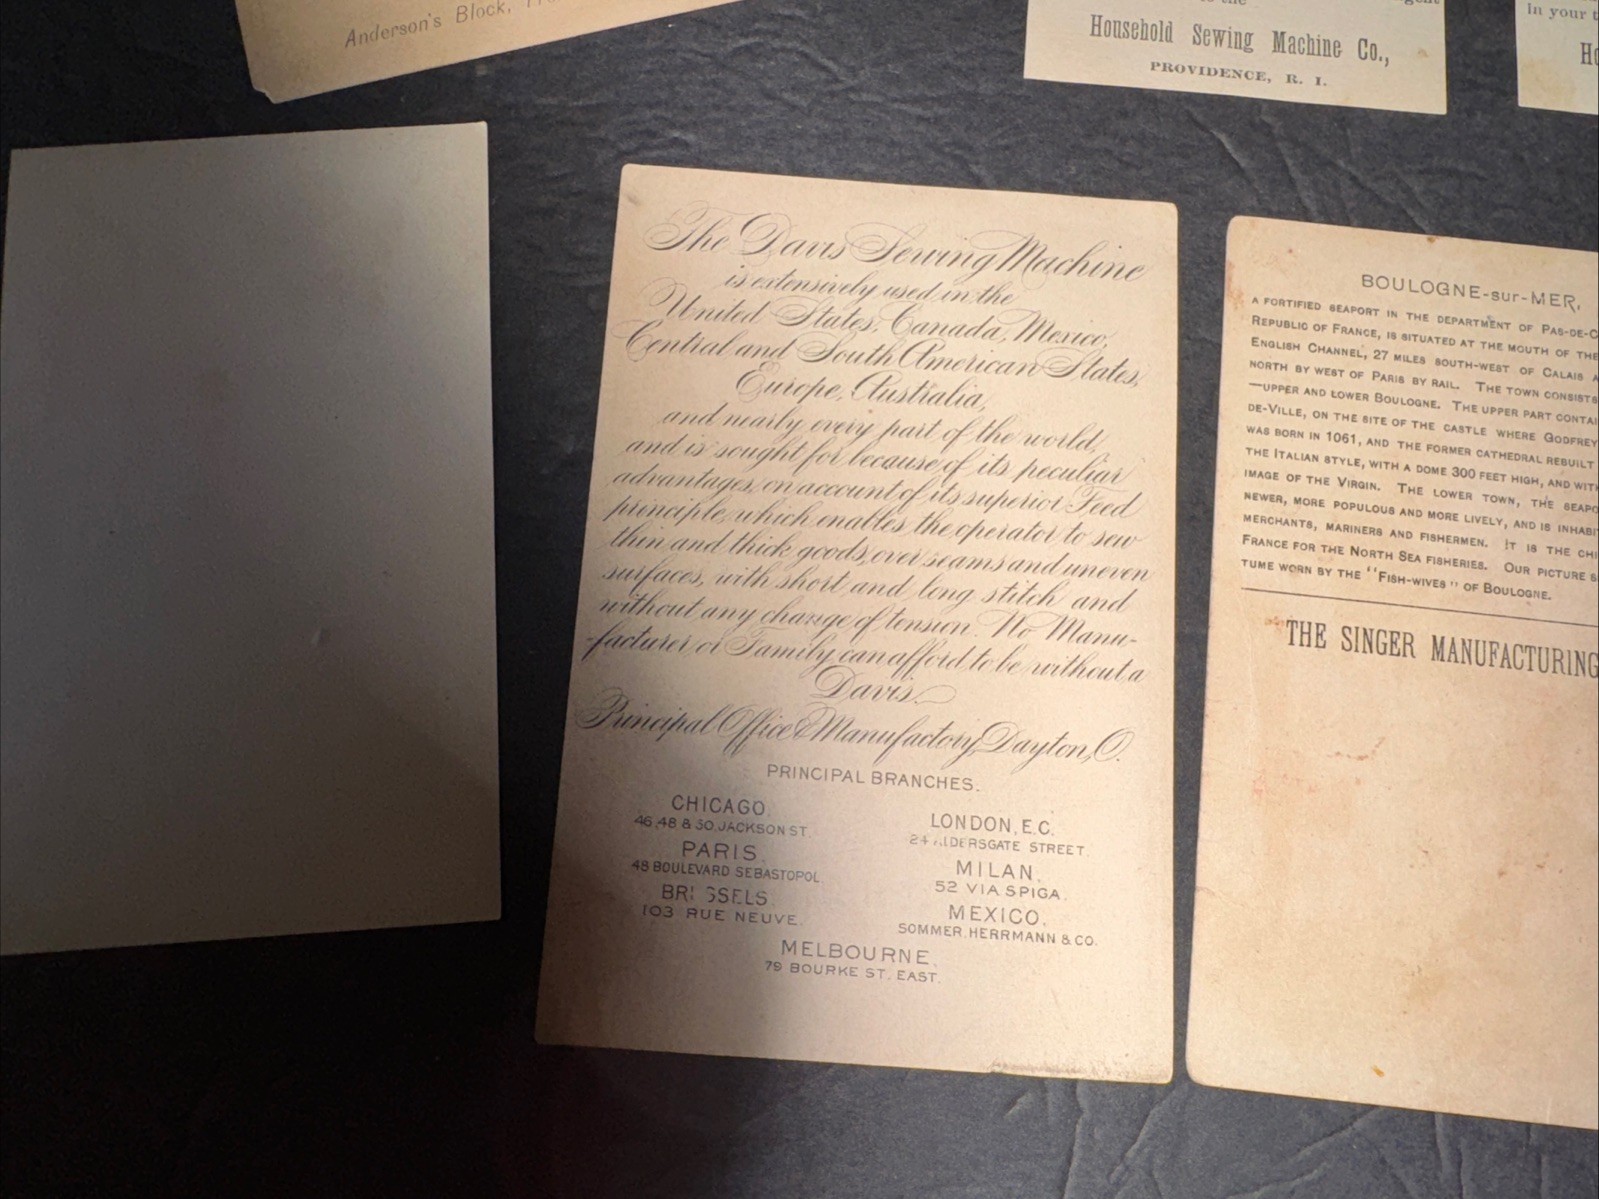 Anderson's Block,
Household Sewing Machine Co.,
PROVIDENCE, R. I.
In your
The Davis Sewing Machine
is extensively used in the
United States, Canada, Mexico,
Central and South American States,
Europe, Australia,
and nearly every part of the world,
and is sought for because of its peculiar
advantages, on account of its superior Feed
principle, which enables the operator to sew
thin and thick goods, over seams and uneven
surfaces, with short and long stitch and
without any change of tension. No Manu-
facturer or Family can afford to be without a
Davis.
Principal Office & Manufactory, Dayton, O.
PRINCIPAL BRANCHES.
CHICAGO.
46, 48 & 50, JACKSON ST.
PARIS.
48 BOULEVARD SEBASTOPOL.
BRUSSELS.
103 RUE NEUVE.
LONDON, E.C.
24 ALDERSGATE STREET.
MILAN.
52 VIA SPIGA.
MEXICO.
SOMMER, HERRMANN & CO.
MELBOURNE.
79 BOURKE ST. EAST.
BOULOGNE-SUR-MER,
A FORTIFIED SEAPORT IN THE DEPARTMENT OF PAS-DE-C
REPUBLIC OF FRANCE, IS SITUATED AT THE MOUTH OF THE
ENGLISH CHANNEL, 27 MILES SOUTH-WEST OF CALAIS A
NORTH BY WEST OF PARIS BY RAIL. THE TOWN CONSISTS
—UPPER AND LOWER BOULOGNE. THE UPPER PART CONTAI
DE-VILLE, ON THE SITE OF THE CASTLE WHERE GODFREY
WAS BORN IN 1061, AND THE FORMER CATHEDRAL REBUILT
THE ITALIAN STYLE, WITH A DOME 300 FEET HIGH, AND WIT
IMAGE OF THE VIRGIN. THE LOWER TOWN, THE SEAPO
NEWER, MORE POPULOUS AND MORE LIVELY, AND IS INHABI
MERCHANTS, MARINERS AND FISHERMEN. IT IS THE CHI
FRANCE FOR THE NORTH SEA FISHERIES. OUR PICTURE S
TUME WORN BY THE "FISH-WIVES" OF BOULOGNE.
THE SINGER MANUFACTURING